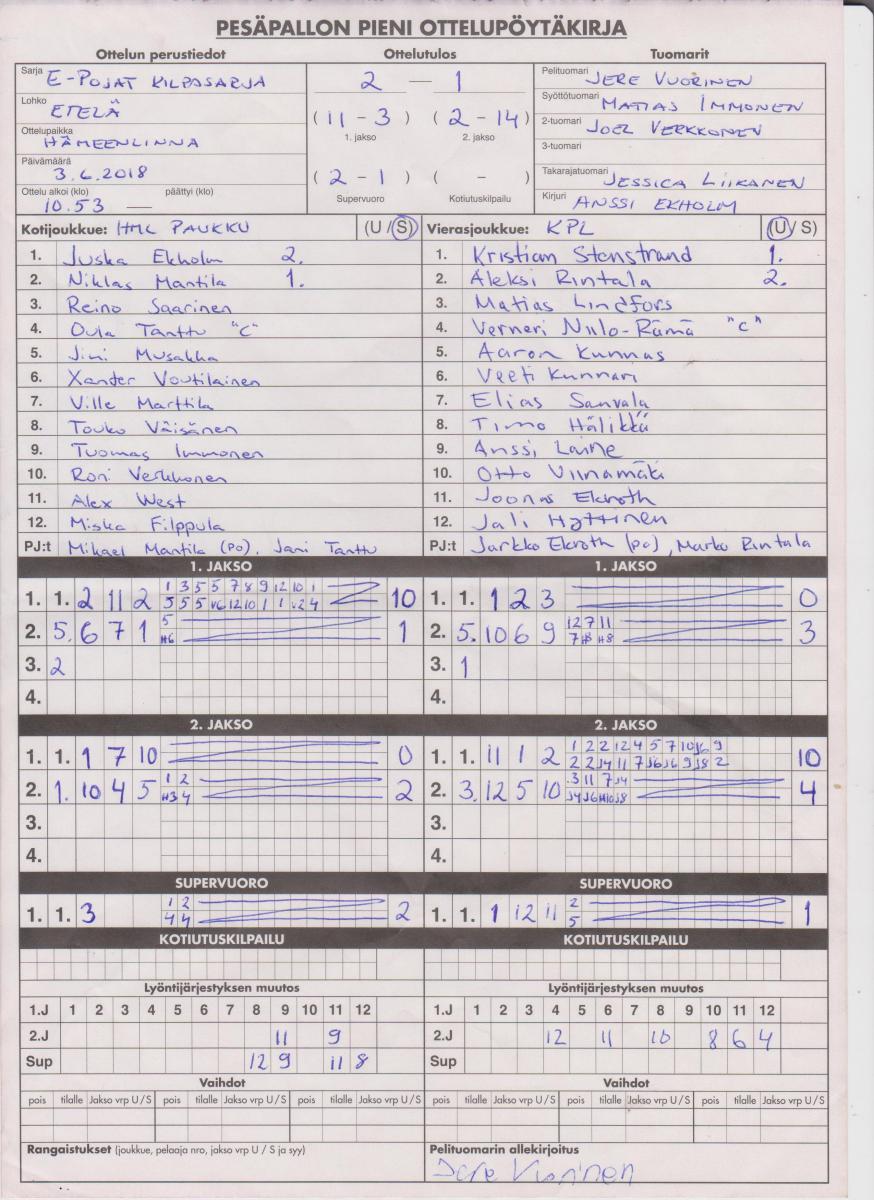 PESÄPALLON PIENI OTTELUPÖYTÄKIRJA
Ottelun perustiedot Ottelutulos Tuomarit
Sarja E-POJAT KILPASARJA
Lohko ETELÄ
Ottelupaikka HÄMEENLINNA
Päivämäärä 3.6.2018
Ottelu alkoi (klo) päättyi (klo)
10.53 —
2 — 1
( 11 - 3 ) ( 2 - 14 )
1. jakso 2. jakso
( 2 - 1 ) ( - )
Supervuoro Kotiutuskilpailu
Pelituomari JERE VUORINEN
Syöttötuomari MATIAS IMMONEN
2-tuomari JOEL VERKKONEN
3-tuomari
Takarajatuomari JESSICA LIIKANEN
Kirjuri ANSSI EKHOLM
Kotijoukkue: HML PAUKKU (U / S)
1. Juska Ekholm 2.
2. Niklas Mantila 1.
3. Reino Saarinen
4. Oula Tanttu "C"
5. Jimi Musakka
6. Xander Voutilainen
7. Ville Marttila
8. Touko Väisänen
9. Tuomas Immonen
10. Roni Verkkonen
11. Alex West
12. Miska Filppula
PJ:t Mikael Mantila (PO), Jani Tanttu
Vierasjoukkue: KPL (U / S)
1. Kristian Stenstrand 1.
2. Aleksi Rintala 2.
3. Matias Lindfors
4. Verneri Niilo-Rämä "C"
5. Aaron Kunnas
6. Veeti Kunnari
7. Elias Sanvala
8. Timo Hälikkä
9. Anssi Laine
10. Otto Viinamäki
11. Joonas Ekroth
12. Jali Hyttinen
PJ:t Jarkko Ekroth (po), Marko Rintala
1. JAKSO
1. 1. 2 11 2 1 3 5 5 7 8 9 12 10 1 10
5 5 5 V6 12 10 1 1 V2 4
2. 5. 6 7 1 5 1
H6
3. 2
4.
1. JAKSO
1. 1. 1 2 3 0
2. 5. 10 6 9 12 7 11 3
7 H8 H8
3. 1
4.
2. JAKSO
1. 1. 1 7 10 0
2. 1. 10 4 5 1 2 2
H3 4
3.
4.
2. JAKSO
1. 1. 11 1 2 1 2 2 12 4 5 7 10 J6 9 10
2 2 J4 11 7 J6 J6 9 J8 2
2. 3. 12 5 10 3 11 7 J4 4
J4 J6 H10 J8
3.
4.
SUPERVUORO
1. 1. 3 1 2 2
4 4
SUPERVUORO
1. 1. 1 12 11 2 1
5
KOTIUTUSKILPAILU KOTIUTUSKILPAILU
Lyöntijärjestyksen muutos
1.J 1 2 3 4 5 6 7 8 9 10 11 12
2.J 11 9
Sup 12 9 11 8
Lyöntijärjestyksen muutos
1.J 1 2 3 4 5 6 7 8 9 10 11 12
2.J 12 11 10 8 6 4
Sup
Vaihdot Vaihdot
pois tilalle Jakso vrp U / S pois tilalle Jakso vrp U / S pois tilalle Jakso vrp U / S
pois tilalle Jakso vrp U / S pois tilalle Jakso vrp U / S pois tilalle Jakso vrp U / S
Rangaistukset (joukkue, pelaaja nro, jakso vrp U / S ja syy)
Pelituomarin allekirjoitus
Jere Vuorinen